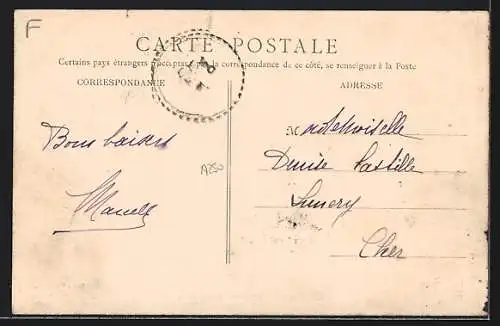 F
CARTE POSTALE
Certains pays étrangers n'acceptent pas la correspondance de ce côté, se renseigner à la Poste
CORRESPONDANCE
ADRESSE
Bons baisers
Marcelle
A250
Mademoiselle
Denise Pastille
Lunery
Cher